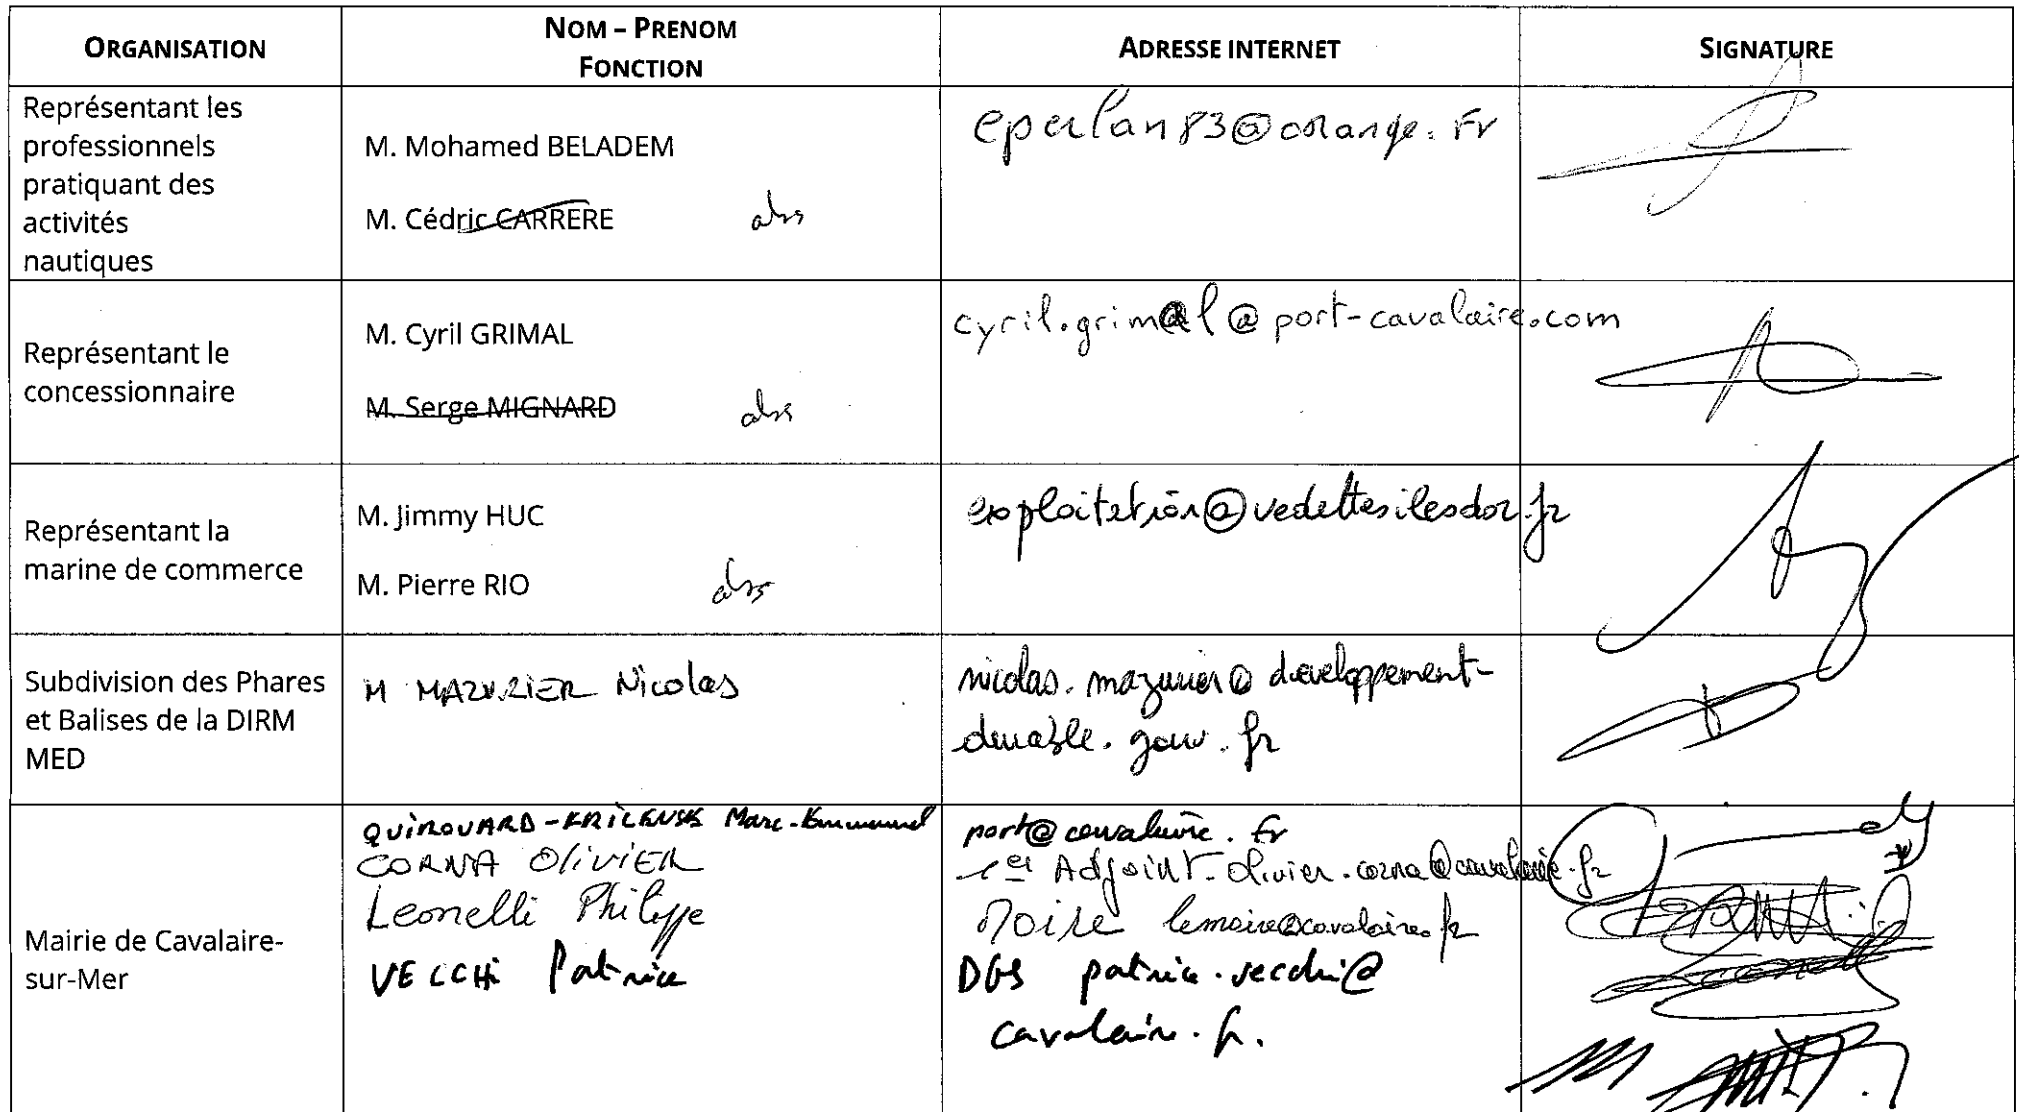 ORGANISATION
NOM – PRENOM
FONCTION
ADRESSE INTERNET
SIGNATURE
Représentant les
professionnels
pratiquant des
activités
nautiques
M. Mohamed BELADEM
M. Cédric CARRERE abs
eperlan83@orange.fr
Représentant le
concessionnaire
M. Cyril GRIMAL
M. Serge MIGNARD abs
cyril.grimal@port-cavalaire.com
Représentant la
marine de commerce
M. Jimmy HUC
M. Pierre RIO abs
exploitation@vedettesilesdor.fr
Subdivision des Phares
et Balises de la DIRM
MED
M MAZURIER Nicolas
nicolas.mazurier@developpement-
durable.gouv.fr
Mairie de Cavalaire-
sur-Mer
Marc-Emmanuel
CORNA OliviER
Leonelli Philippe
VECCHi Patrice
port@cavalaire.fr
1er Adjoint-olivier.corna@cavalaire.fr
Maire lemaire@cavalaire.fr
DGS patrice.vecchi@
cavalaire.fr.